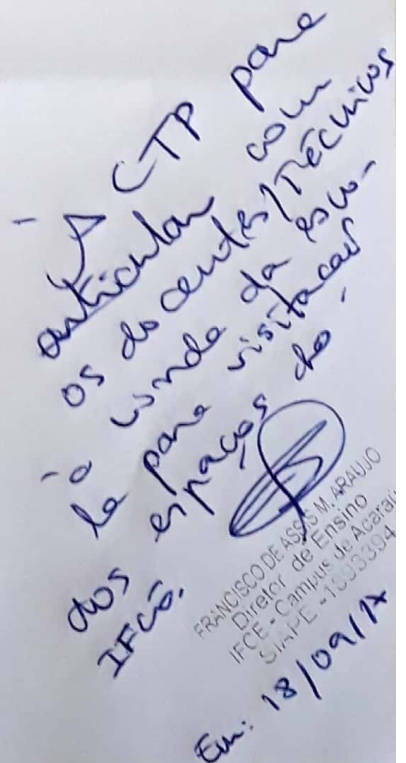 - A CTP para
articular com
os docentes/Técnicos
a vinda da esco-
la para visitação
dos espaços do
IFCE.
FRANCISCO DE ASSIS M. ARAUJO
Diretor de Ensino
IFCE - Campus de Acaraú
SIAPE -
Em: 18/09/17